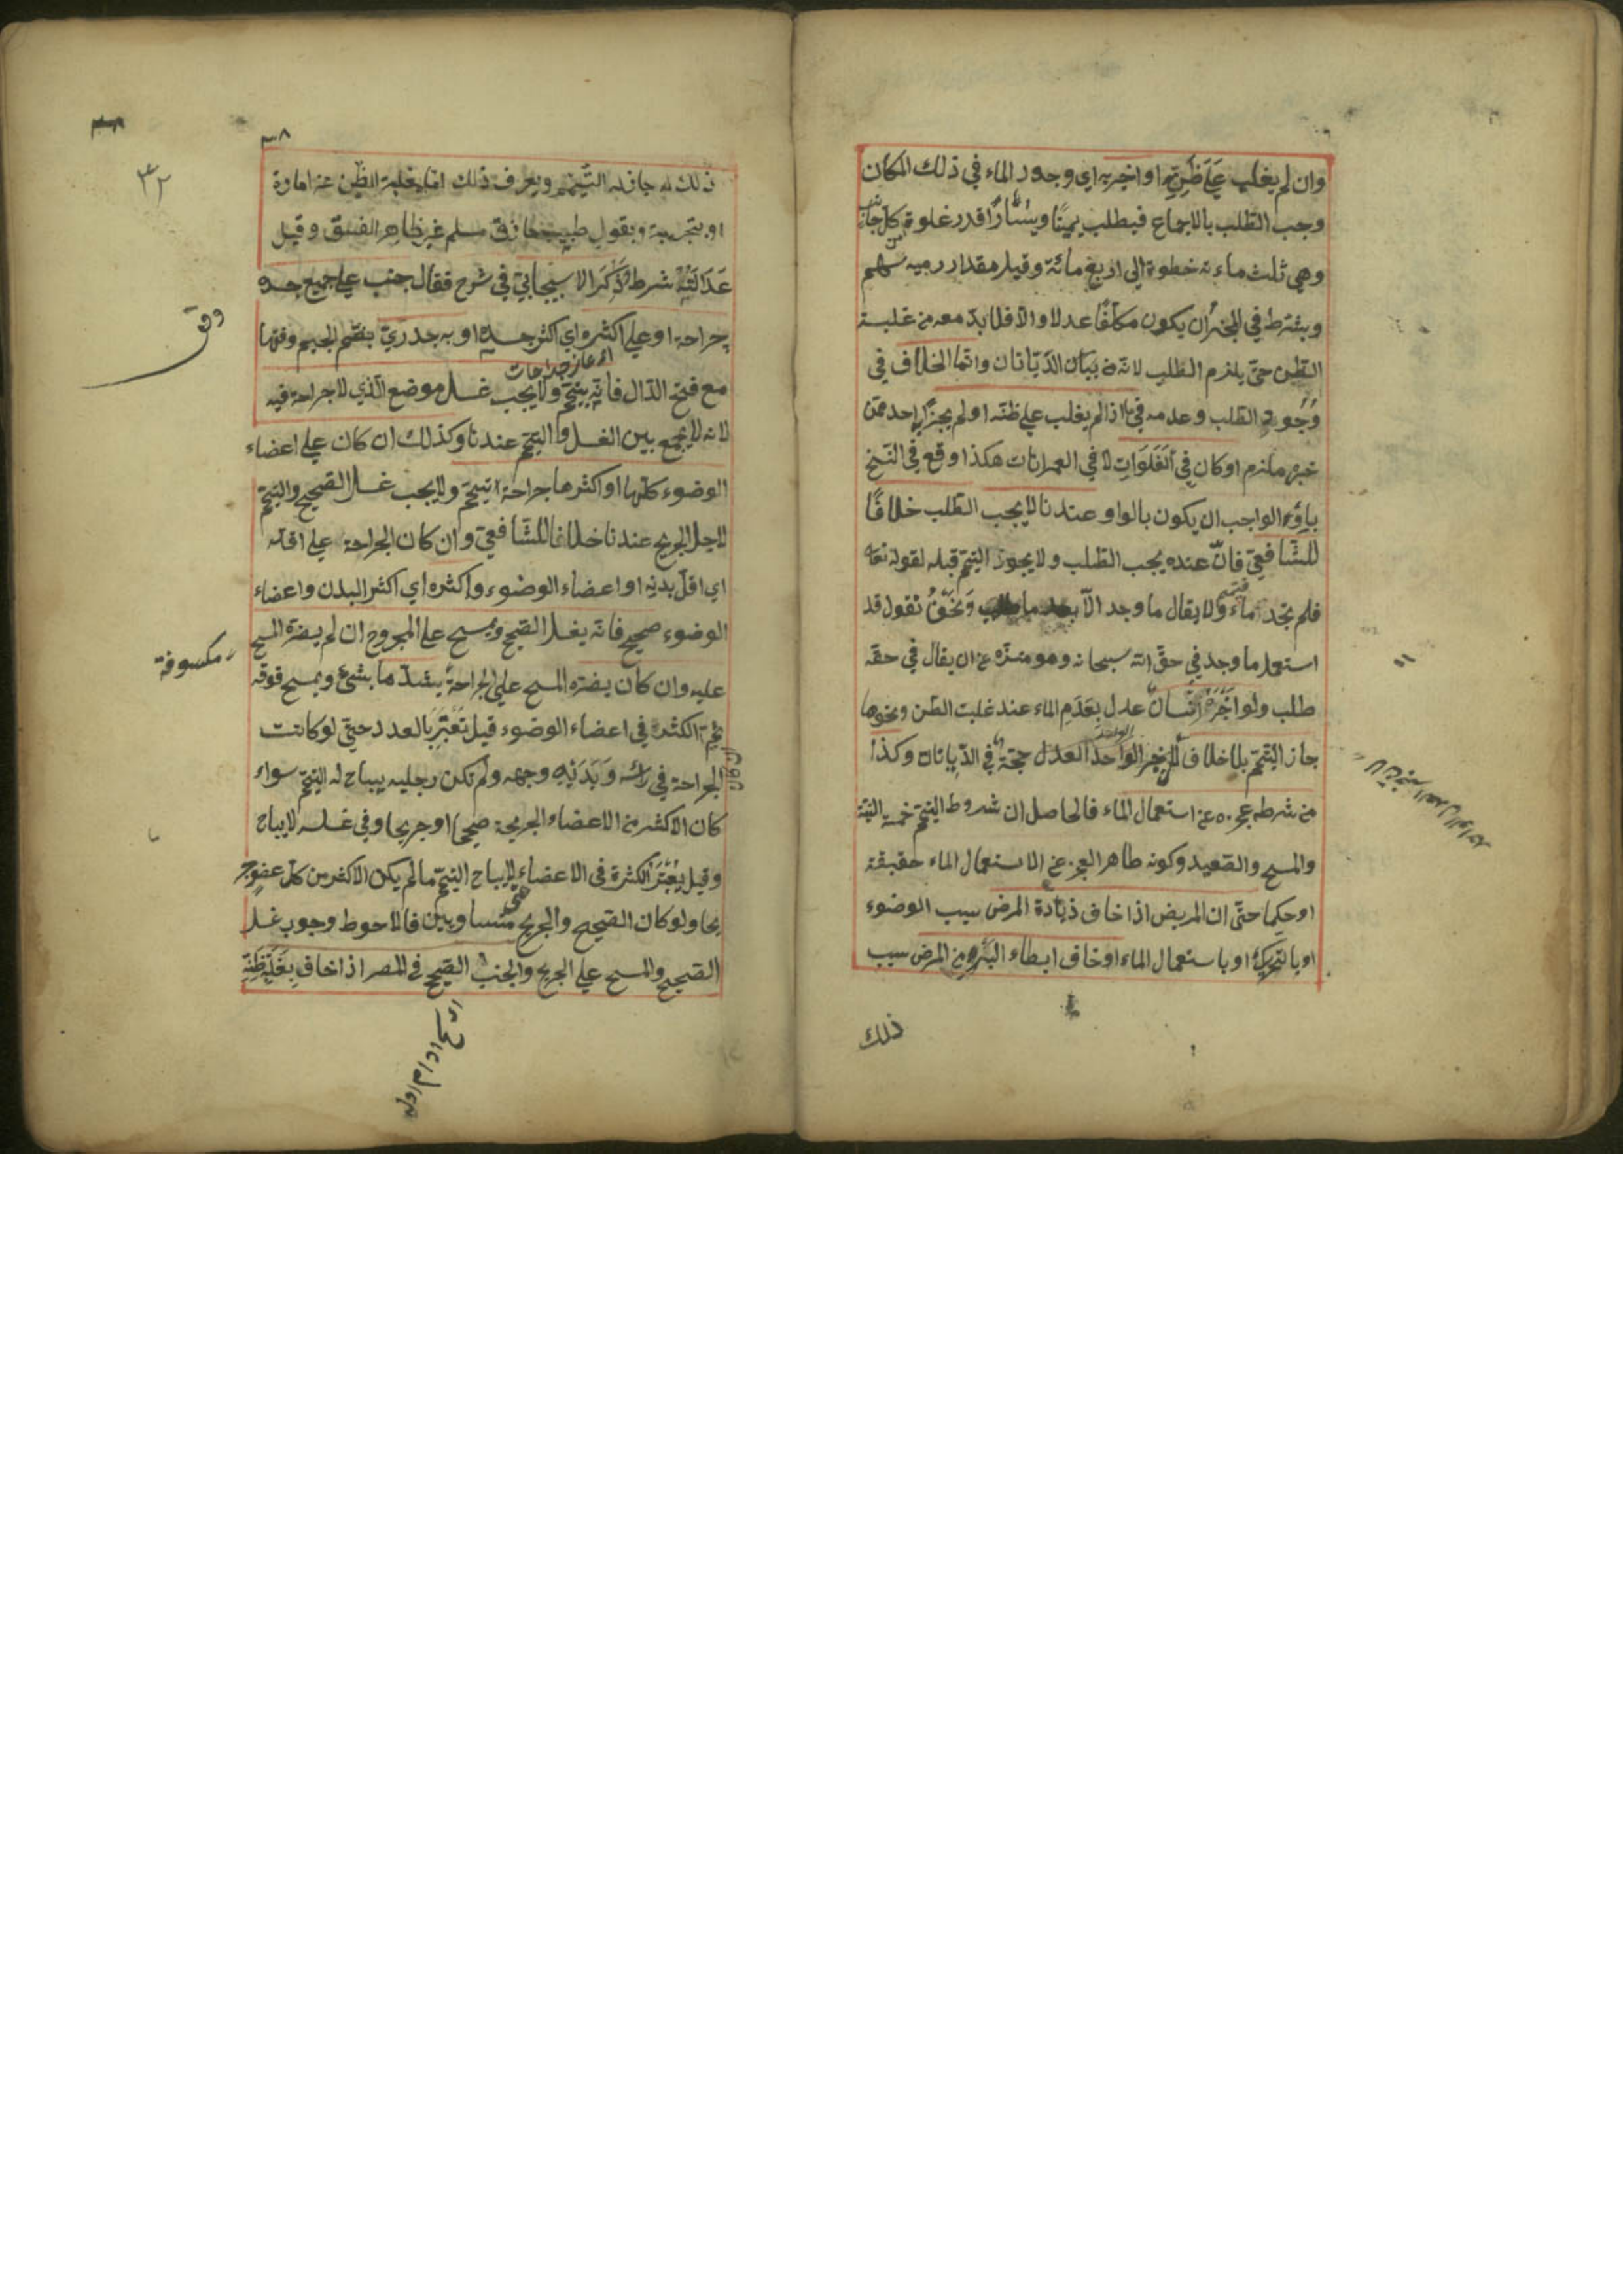 وان لم يغلب على ظنه او اخبر به اي وجود الماء في ذلك المكان
وجب الطلب بالاجماع فيطلب يمينًا ويسارًا قدر غلوة من كل جانب
وهي ثلث مائة خطوة الى اربع مائة وقيل مقدار رمية سهم
ويشترط في المخبر ان يكون مكلفًا عدلا والا فلا بد معه من غلبة
الظن حتى يلزم الطلب لانه من بيان الديانات وانما الخلاف في
وجوب الطلب وعدمه فيما اذا لم يغلب على ظنه او لم يخبره احد ممن
خبره ملزم او كان في الفلوات لا في العمرانات هكذا وقع في النسخ
باؤ الواجب ان يكون بالواو وعندنا لا يجب الطلب خلافًا
للشافعي فان عنده يجب الطلب ولا يجوز التيمم قبله لقوله تعالى
فلم تجدوا ماء فتيمموا ولا يقال ما وجد الا بعد ما طلب ونحن نقول قد
استعمل ما وجد في حق الله سبحانه وهو منزه عن ان يقال في حقه
طلب ولو اخبره انسان عدل بعدم الماء عند غلبت الظن ونحوها
جاز التيمم بلا خلاف لان خبر الواحد العدل حجة في الديانات وكذا
من شرطه عجزه عن استعمال الماء فالحاصل ان شروط التيمم خمسة النية
والمسح والصعيد وكونه طاهر العجز عن الاستعمال الماء حقيقة
او حكما حتى ان المريض اذا خاف زيادة المرض بسبب الوضوء
او بالتحريك او باستعمال الماء او خاف ابطاء البرء من المرض بسبب
ذلك
٣٨
٣٢
ذلك له جاز له التيمم ويعرف ذلك اما بغلبة الظن عن امارة
او بتجربة او بقول طبيب حاذق مسلم غير ظاهر الفسق وقيل
عدالته شرط وذكر الاسبيجابي في شرح فقال جنب على جميع جسده
جراحة او على اكثره اي اكثر جسده او به جدري بضم الجيم وفتحها
مع فتح الدال فانه يتيمم ولا يجب غسل موضع الذي لا جراحة فيه
لانه لا يجمع بين الغسل والتيمم عندنا وكذلك ان كان على اعضاء
الوضوء كلها او اكثرها جراحة تيمم ولا يجب غسل الصحيح والتيمم
لاجل الجريح عندنا خلافا للشافعي وان كان الجراحة على اقله
اي اقل بدنه او اعضاء الوضوء واكثره اي اكثر البدن واعضاء
الوضوء صحيح فانه يغسل الصحيح ويمسح على المجروح ان لم يضره المسح
مكسوفة
عليه وان كان يضره المسح على الجراحة يشدها بشئ ويمسح فوقه
ثم الكثرة في اعضاء الوضوء قيل تعتبر بالعدد حتى لو كانت
الجراحة في رأسه ويديه وجهه ولم تكن رجليه يباح له التيمم سواء
كان الاكثر من الاعضاء الجريحة صحيحا او جريحا وفي غسله لا يباح
وقيل يعتبر الكثرة في الاعضاء لا يباح التيمم ما لم يكن الاكثر من كل عضو جر
يحا ولو كان الصحيح والجريح متساويين فالاحوط وجوب غسل
الصحيح والمسح على الجريح والجنب الصحيح في المصر اذا خاف بغلبة ظنه